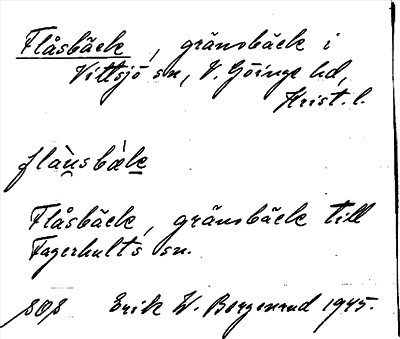 Flåsbäck, gränsbäck i
Vittsjö sn, V. Göinge hd,
Krist. l.
flàu̯sbæ̀k
Flåsbäck, gränsbäck till
Fagerhults sn.
sOs Erik W. Borgenrud 1945.